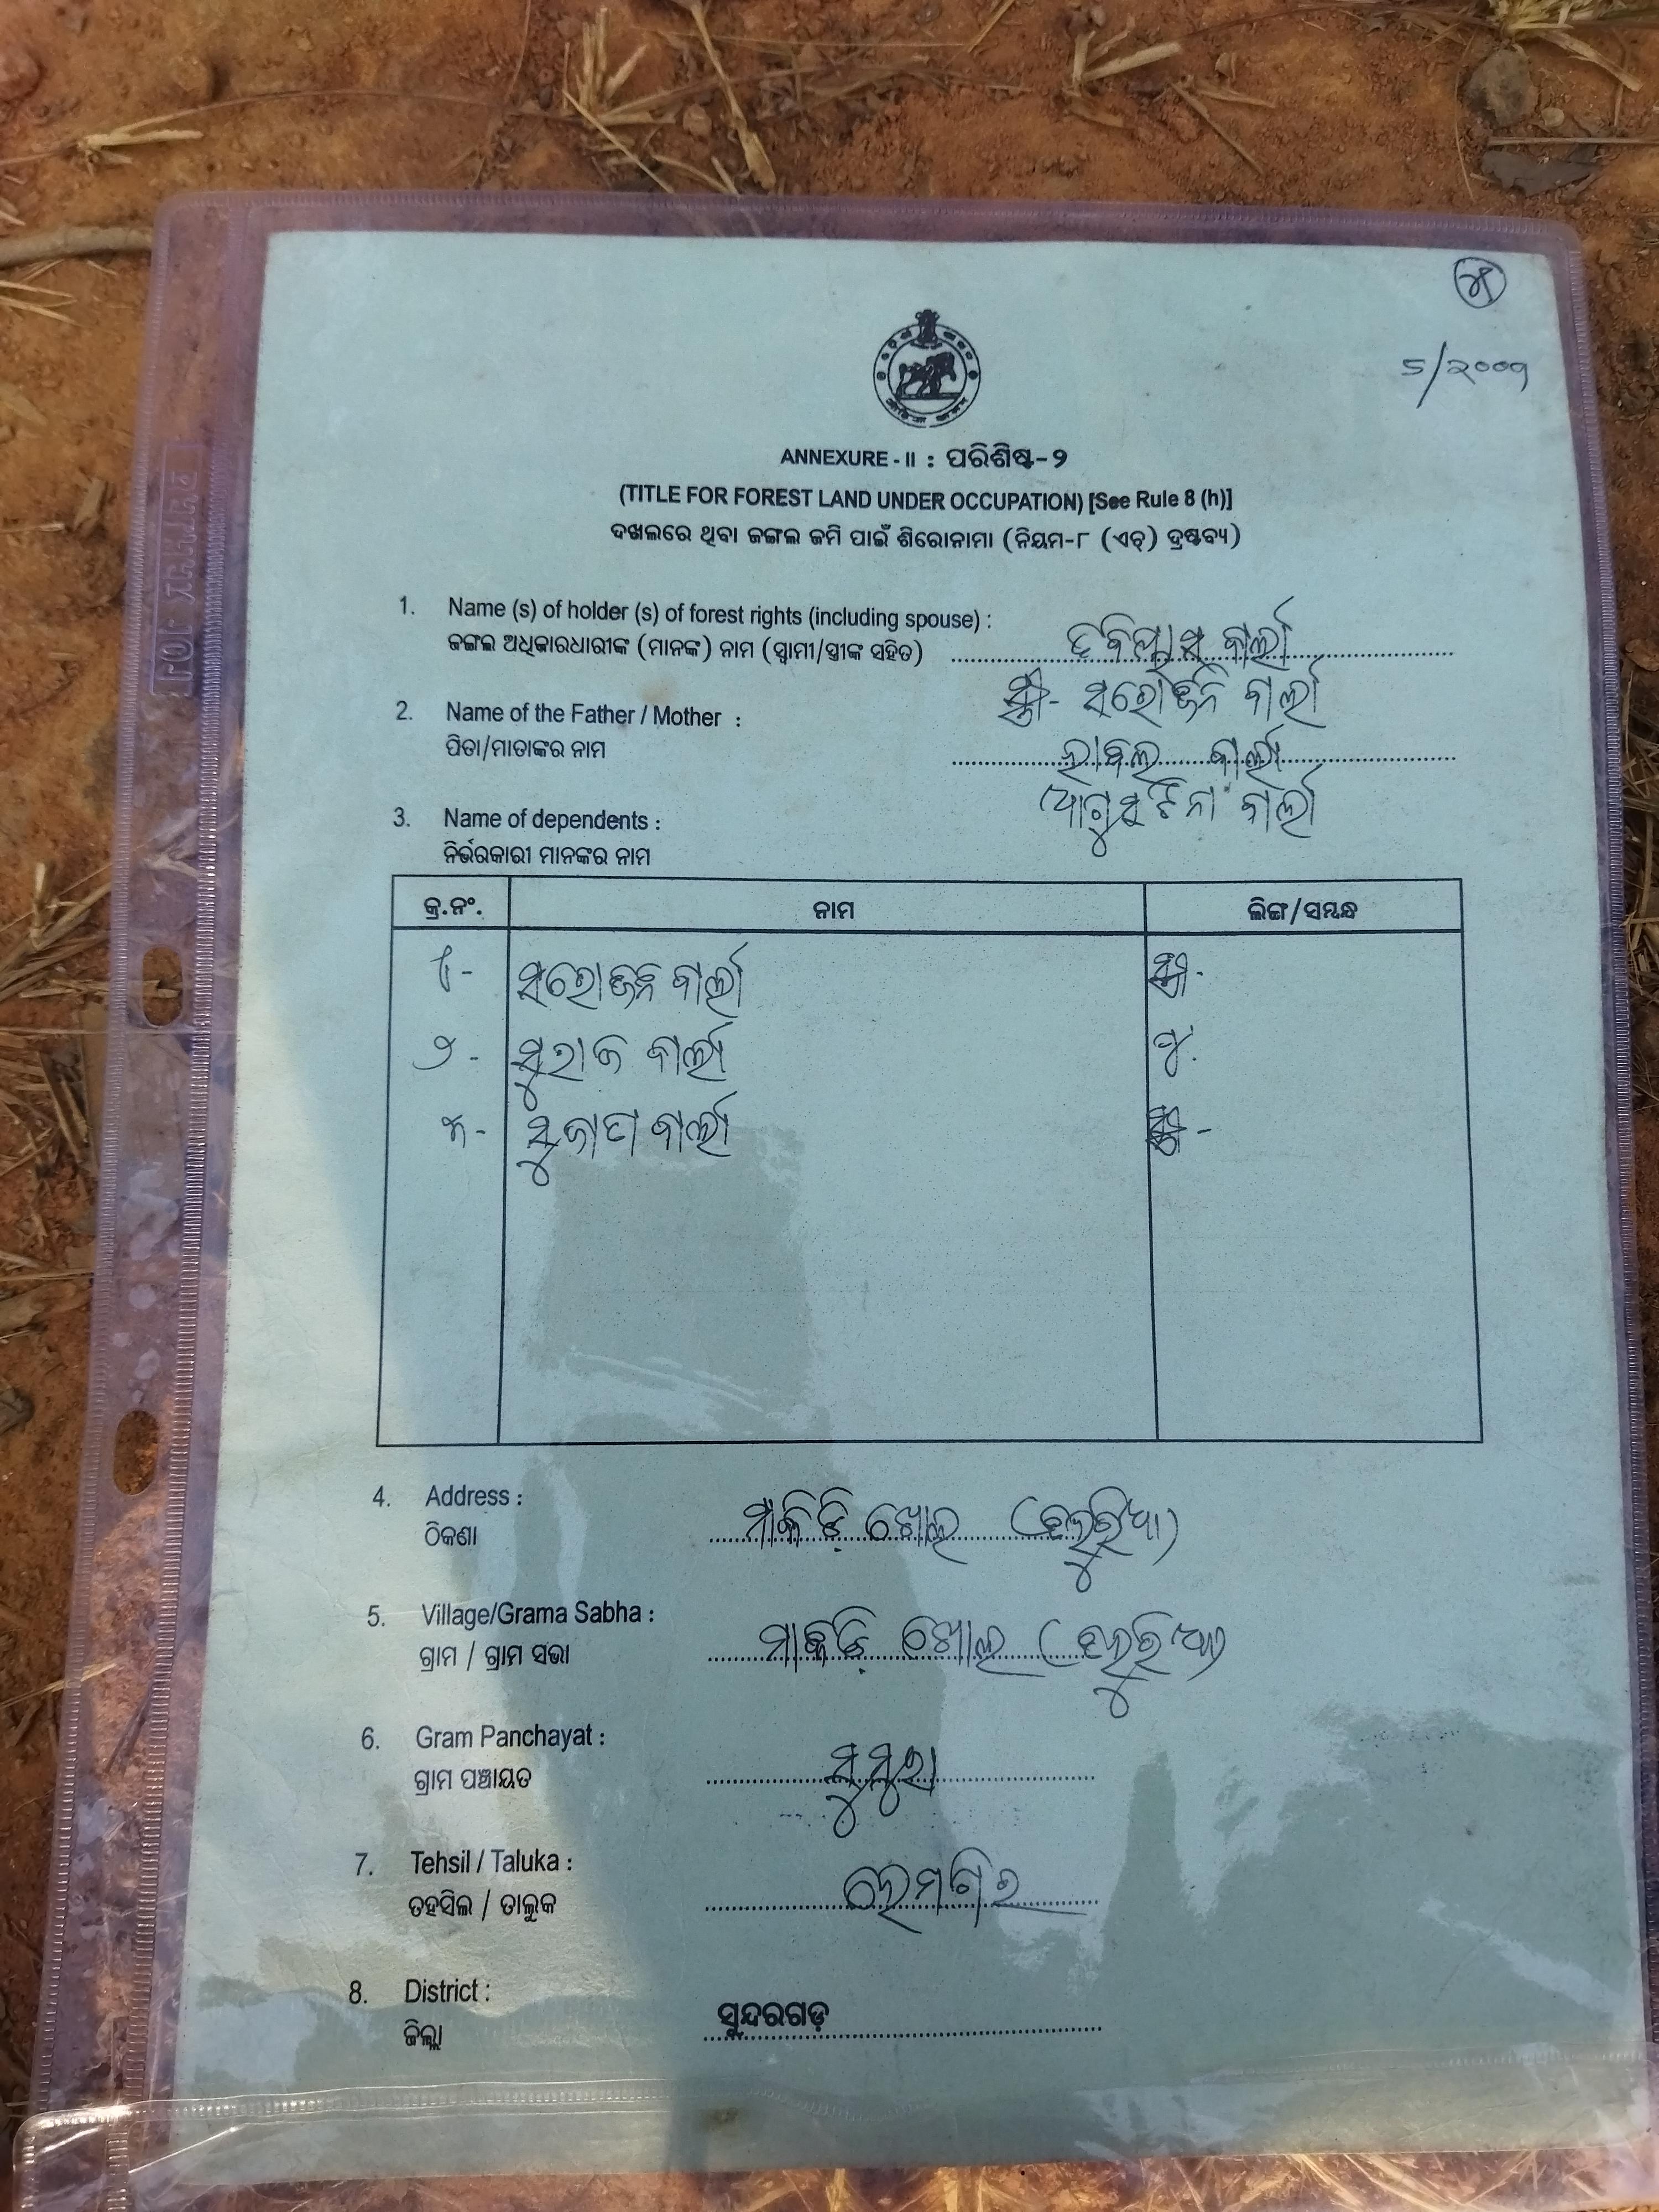 ANNEXURE - II : ପରିଶିଷ୍ଟ-୨
(TITLE FOR FOREST LAND UNDER OCCUPATION) [See Rule 8 (h)]
ଦଖଲରେ ଥିବା ଜଙ୍ଗଲ ଜମି ପାଇଁ ଶିରୋନାମା (ନିୟମ-୮ (ଏଚ୍) ଦ୍ରଷ୍ଟବ୍ୟ)
1. Name (s) of holder (s) of forest rights (including spouse) :
ଜଙ୍ଗଲ ଅଧିକାରଧାରୀଙ୍କ (ମାନଙ୍କ) ନାମ (ସ୍ୱାମୀ/ସ୍ତ୍ରୀଙ୍କ ସହିତ) ବାର୍ଲା
ସ୍ତ୍ରୀ- ସରୋଜନି ବାର୍ଲା
2. Name of the Father / Mother :
ପିତା/ମାତାଙ୍କର ନାମ ବାର୍ଲା
ଆଗୁସଟିନା ବାର୍ଲା
3. Name of dependents :
ନିର୍ଭରକାରୀ ମାନଙ୍କର ନାମ
କ୍ର.ନଂ. ନାମ ଲିଙ୍ଗ/ସମ୍ବନ୍ଧ
୧- ସରୋଜନି ବାର୍ଲା
୨- ସୁରାଜ ବାର୍ଲା ପୁ.
୩- ସୁଜାତା ବାର୍ଲା
4. Address :
ଠିକଣା ମାକଡି ଖୋଲ
5. Village/Grama Sabha :
ଗ୍ରାମ / ଗ୍ରାମ ସଭା ମାକଡି ଖୋଲ
6. Gram Panchayat :
ଗ୍ରାମ ପଞ୍ଚାୟତ
7. Tehsil / Taluka :
ତହସିଲ / ତାଲୁକ ଲେମଗିର
8. District :
ଜିଲ୍ଲା ସୁନ୍ଦରଗଡ଼